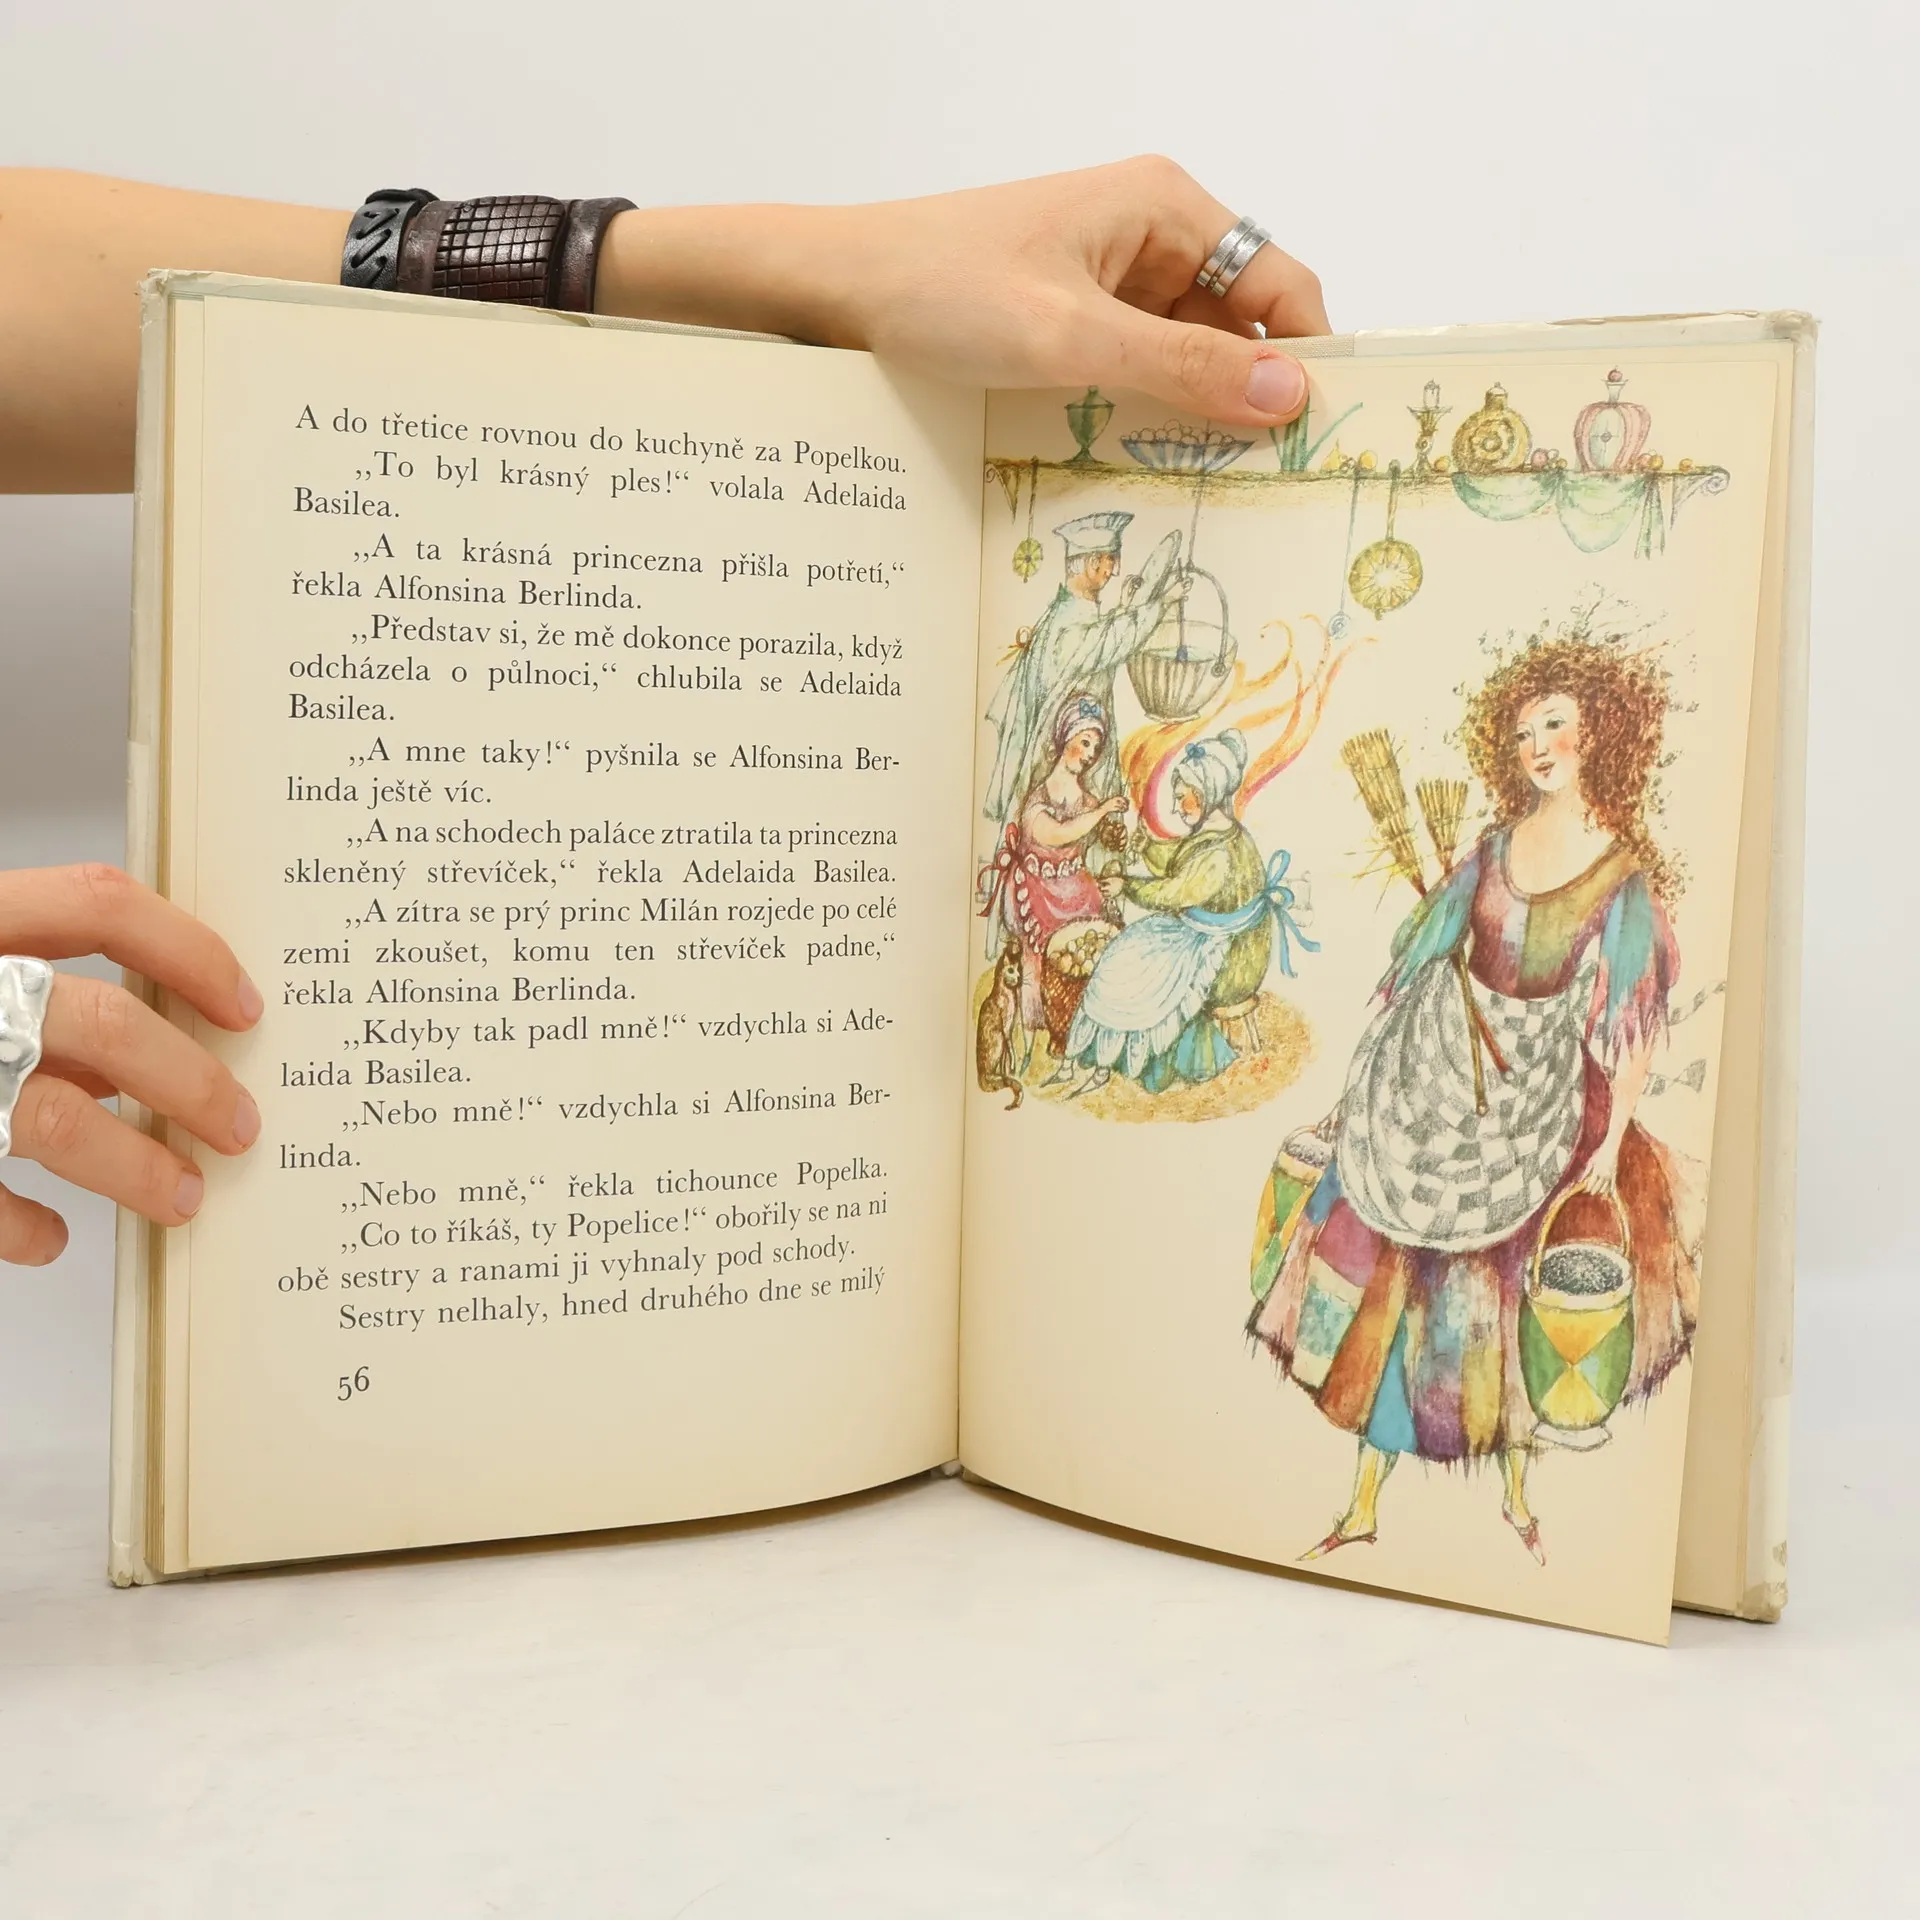 A do třetice rovnou do kuchyně za Popelkou.
,,To byl krásný ples!“ volala Adelaida
Basilea.
,,A ta krásná princezna přišla potřetí,“
řekla Alfonsina Berlinda.
,,Představ si, že mě dokonce porazila, když
odcházela o půlnoci,“ chlubila se Adelaida
Basilea.
,,A mne taky!“ pyšnila se Alfonsina Ber-
linda ještě víc.
,,A na schodech paláce ztratila ta princezna
skleněný střevíček,“ řekla Adelaida Basilea.
,,A zítra se prý princ Milán rozjede po celé
zemi zkoušet, komu ten střevíček padne,“
řekla Alfonsina Berlinda.
,,Kdyby tak padl mně!“ vzdychla si Ade-
laida Basilea.
,,Nebo mně!“ vzdychla si Alfonsina Ber-
linda.
,,Nebo mně,“ řekla tichounce Popelka.
,,Co to říkáš, ty Popelice!“ obořily se na ni
obě sestry a ranami ji vyhnaly pod schody.
Sestry nelhaly, hned druhého dne se milý
56